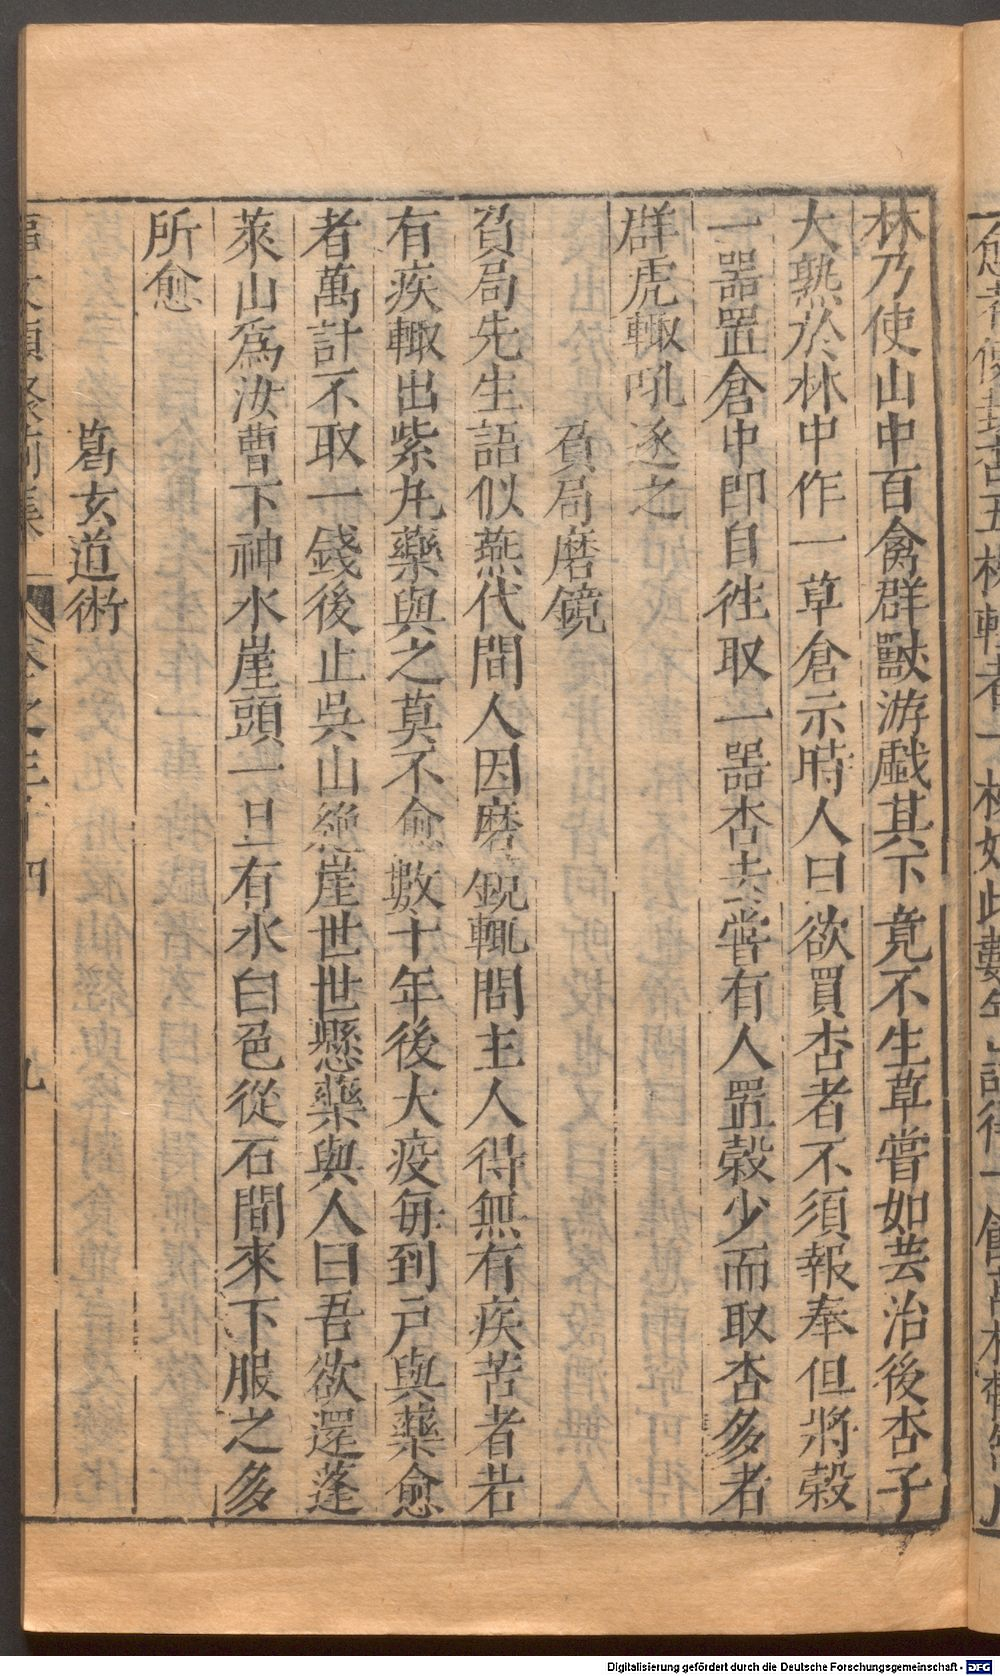 林乃使山中百禽群獸游戱其下竟不生草嘗如芸治後杏子
大熟於林中作一草倉示時人曰欲買杏者不須報奉但將榖
一噐置倉中即自徃取一噐杏去嘗有人置榖少而取杏多者
群虎輙吼逐之
負局磨鏡
負局先生語似燕代間人因磨鏡輒問主人得無有疾苦者若
有疾輙出紫丸藥與之莫不愈數十年後大疫毎到戸與藥愈
者萬計不取一錢後止吳山絶崖世世懸藥與人曰吾欲還蓬
萊山爲汝曹下神水崖頭一旦有水白色從石間來下服之多
所愈
葛玄道術
事文類聚前集 卷之三十四 九
Digitalisierung gefördert durch die Deutsche Forschungsgemeinschaft - DFG